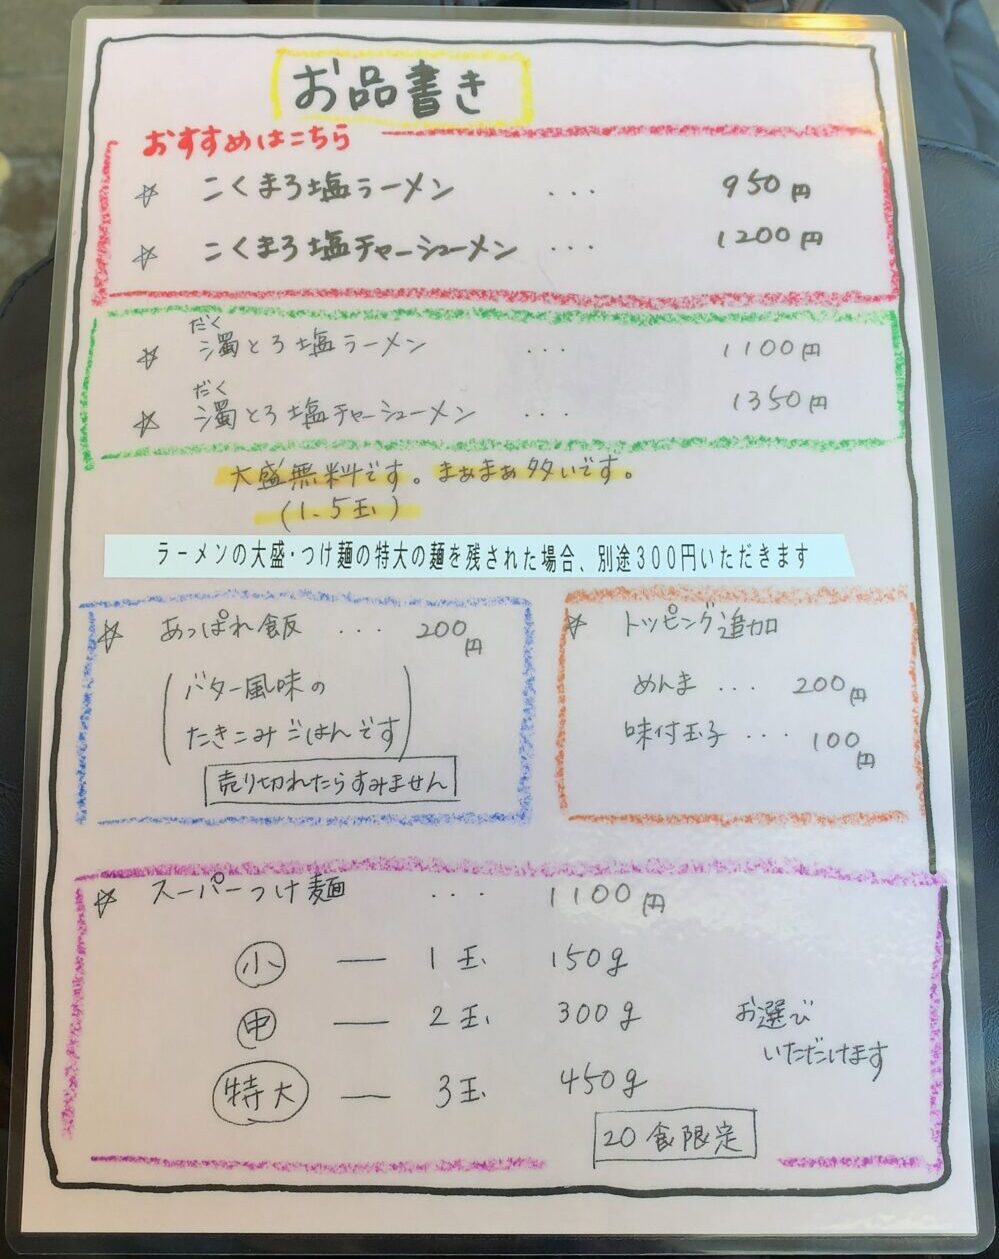 お品書き
おすすめはこちら
☆ こくまろ塩ラーメン ... 950円
☆ こくまろ塩チャーシューメン ... 1200円
だく
☆ 濁とろ塩ラーメン ... 1100円
だく
☆ 濁とろ塩チャーシューメン ... 1350円
大盛無料です。まぁまぁ多いです。
(1.5玉)
ラーメンの大盛・つけ麺の特大の麺を残された場合、別途300円いただきます
☆ あっぱれ飯 ... 200円
(バター風味の
たきこみごはんです)
売り切れたらすみません
☆ トッピング追加
めんま ... 200円
味付玉子 ... 100円
☆ スーパーつけ麺 ... 1100円
小 — 1玉 150g
中 — 2玉 300g
お選び
いただけます
特大 — 3玉 450g
20食限定